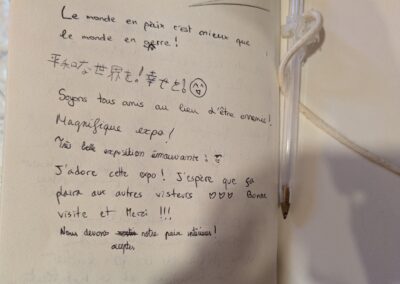 Le monde en paix c'est mieux que
le monde en guerre !
平和な世界を!幸せを!
Soyons tous amis au lieu d'être ennemis !
Magnifique expo !
Très belle exposition émouvante !
J'adore cette expo ! J'espère que ça
plaira aux autres visteurs ♡♡♡ Bonne
visite et Merci !!!
Nous devons notre paix intérieure !
accepter